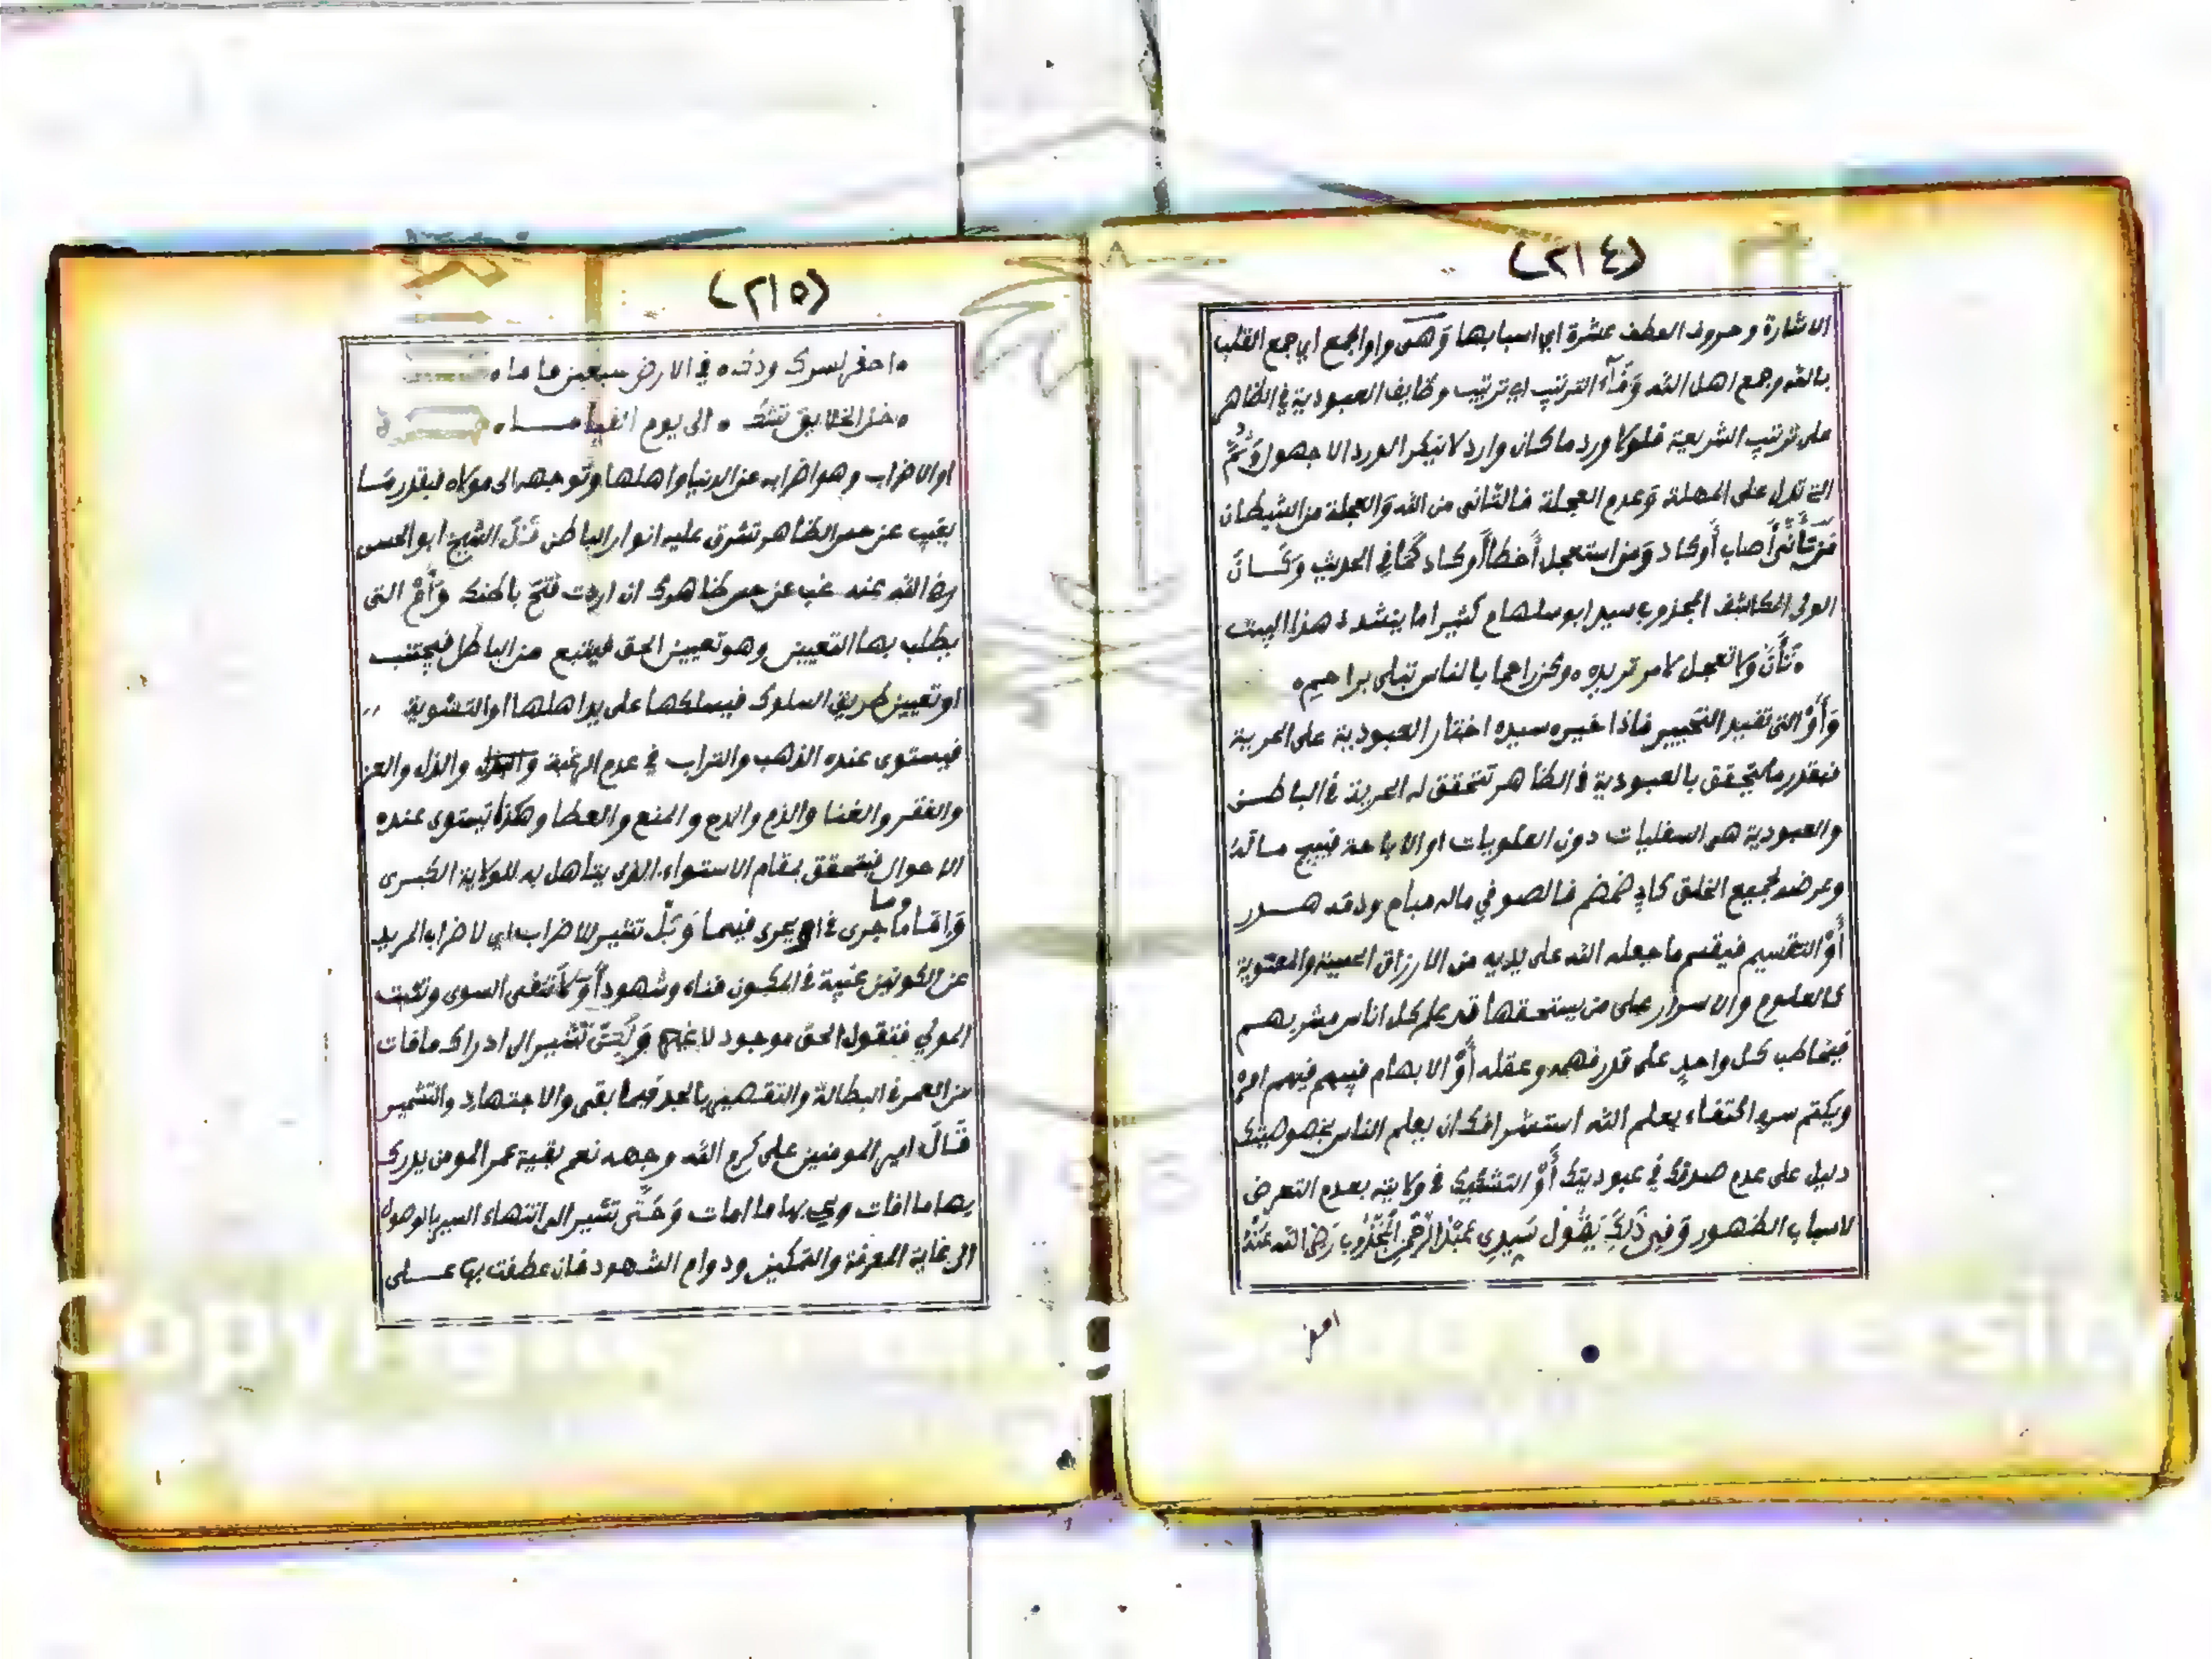 (٢١٤)
الاشارة وحروف العطف عشرة اي اسبابها وَهى واو الجمع اي جمع القلب
بالله وجمع اهل الله وَفَآءُ الترتيب اي ترتيب وظايف العبودية في الظاهر
على ترتيب الشريعة فلولا ورد ما كان وارد لا ينكر الورد الا جهول وَثُمَّ
التي تدل على المهلة وَعدم العجلة فالتانى من الله وَالعجلة من الشيطان
مَن تَأَنَّى أَصاب أَو كاد وَمن استعجل أَخطأ أَو كاد كَمَا في الحديث وَكَــانَ
الولي المكاشف المجذوب سيد ابو سلهام كثيرا ما ينشد هذا البيت
٥ تَأَنَّ وَلا تعجل لامر تريده ٥ وكن راحما بالناس تبلى براحيم ٥
وَأَوْ التي تفيد التخيير فاذا خيره سيده اختار العبودية على الحرية
فبقدر ما يتحقق بالعبودية في الظاهر تتحقق له الحرية في الباطــن
والعبودية هى السفليات دون العلويات او الاباحة فيبيح مـالـه
وعرضه لجميع الخلق كابي ضمضم فالصوفي ماله مباح ودمه هــدر
أَوْ التقسيم فيقسم ما جعله الله على يديه من الارزاق الحسية والمعنوية
كالعلوم والاسرار على من يستحقها قد علم كل اناس مشربهــم
فيخاطب كل واحدٍ على قدر فهمه وعقله أَوْ الابهام فيبهم فيهم امره
ويكتم سره اكتفاء بعلم الله استشرافك ان يعلم الناس بخصوصيتك
دليل على عدم صدقك في عبوديتك أَوْ التشكيك في ولايته بعدم التعرض
لاسباب الظهور وَفِي ذَلِكَ يَقُولُ سَيِدِي عَبْدُ الرَّحْمنِ الْمَجْذُوبِ رَضي الله عَنْهُ
احفر
(٢١٥)
٥ احفر لسرك ودكه ٥ في الارض سبعين ما ما ٥
٥ خل الخلايق تشك ٥ الى يوم القيامــا ٥
او الاضراب وهو اضرابه عن الدنيا واهلها وَتوجهه الى مولاه فبقدر مَـا
يغيب عن حس الظاهر تشرق عليه انوار الباطن قَـالَ الشيخ ابو الحسن
رضى الله عنه غب عن حس ظاهرك ان اردت فتح باطنك وَأَمْ التى
يطلب بها التعيين وهو تعيين الحق فيتبع من الباطل فيجتنب
او تعيين طريق السلوك فيسلكها على يد اهلها او التسوية
فيستوى عنده الذهب والتراب في عدم الرغبة والذل والعز
والفقر والغنا والذم والمدح والمنع والعطا وهكذا تستوى عنده
الاحوال فيتحقق بمقام الاستواء الذى يتاهل به للولاية الكبرى
وَامَّـا مـا جرى في او يجرى فيهما وَبَلْ تشير للاضراب اي لاضراب المريد
عن الكونين غيبة في المكون فناء وشهودا وَلَا تنفى السوى وتثبت
المولي فنقول الحق موجود لا غير وَلَكِنْ تشير الى ادراك ما فات
من العمر في البطالة والتقصير بالجد فيما بقى والاجتهاد والتشمير
قَـالَ امير المومنين على كرم الله وجهه نعم بقية عمر المومن يدرك
بها ما افات ويحي بها ما امات وَحَتَّى تشير الى انتهاء السير بالوصول
الى غاية المعرفة والتمكين ودوام الشهود فان عطفت بها عــلى